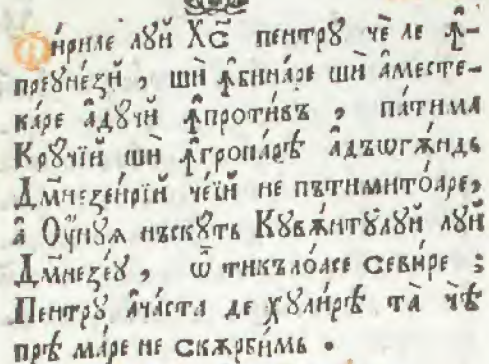 Фи́риле лꙋй Хс҃ пентрꙋ чѐ ле ꙟ҆-
преꙋне́зй, шѝ ꙟ҆бина́ре шѝ а҆месте-
ка́ре а҆дꙋчй ꙟ҆протѝвъ, па́тима
Крꙋчїй шѝ ꙟ҆гропа́рѣ а҆дъѡгѫ́ндь
Дм҃незеи́рїй че́їй не пътимито́аре,
а҆ Оу҆нꙋꙗ нъскꙋ́ть Кꙋвѫ́нтꙋлꙋй лꙋй
Дм҃незе́ꙋ, ѿ тикъло́асе севи́ре :
Пентрꙋ́ а҆ча́ста де хꙋли́рѣ та̀ чѣ
прѣ ма́ре не скѫрби́мь .